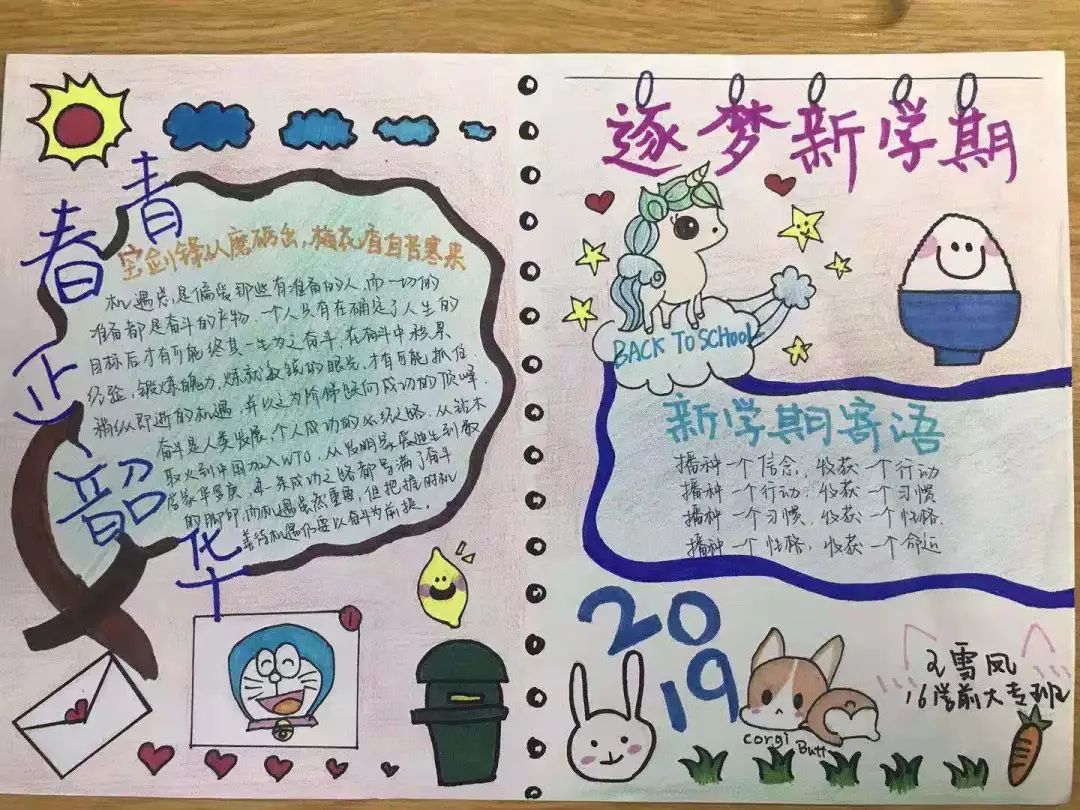 青春正韶华
宝剑锋从磨砺出，梅花香自苦寒来
机遇总是偏爱那些有准备的人，而一切的
准备都是奋斗的产物。一个人只有在确定了人生的
目标后才有可能终其一生为之奋斗，在奋斗中积累
经验，锻炼能力，炼就敏锐的眼光，才有可能抓住
稍纵即逝的机遇，并以之为阶梯迈向成功的顶峰。
奋斗是人类发展，个人成功的必经之路，从钻木
取火到中国加入WTO，从发明家爱迪生到数
学家华罗庚，每一条成功之路都写满了奋斗
的脚印，而机遇虽然重要，但把握时机
善待机遇仍要以奋斗为前提。
1
逐梦新学期
BACK TO SCHOOL
新学期寄语
播种一个信念，收获一个行动
播种一个行动，收获一个习惯
播种一个习惯，收获一个性格
播种一个性格，收获一个命运
2019
corgi Butt
王雪凤
16学前大专班2